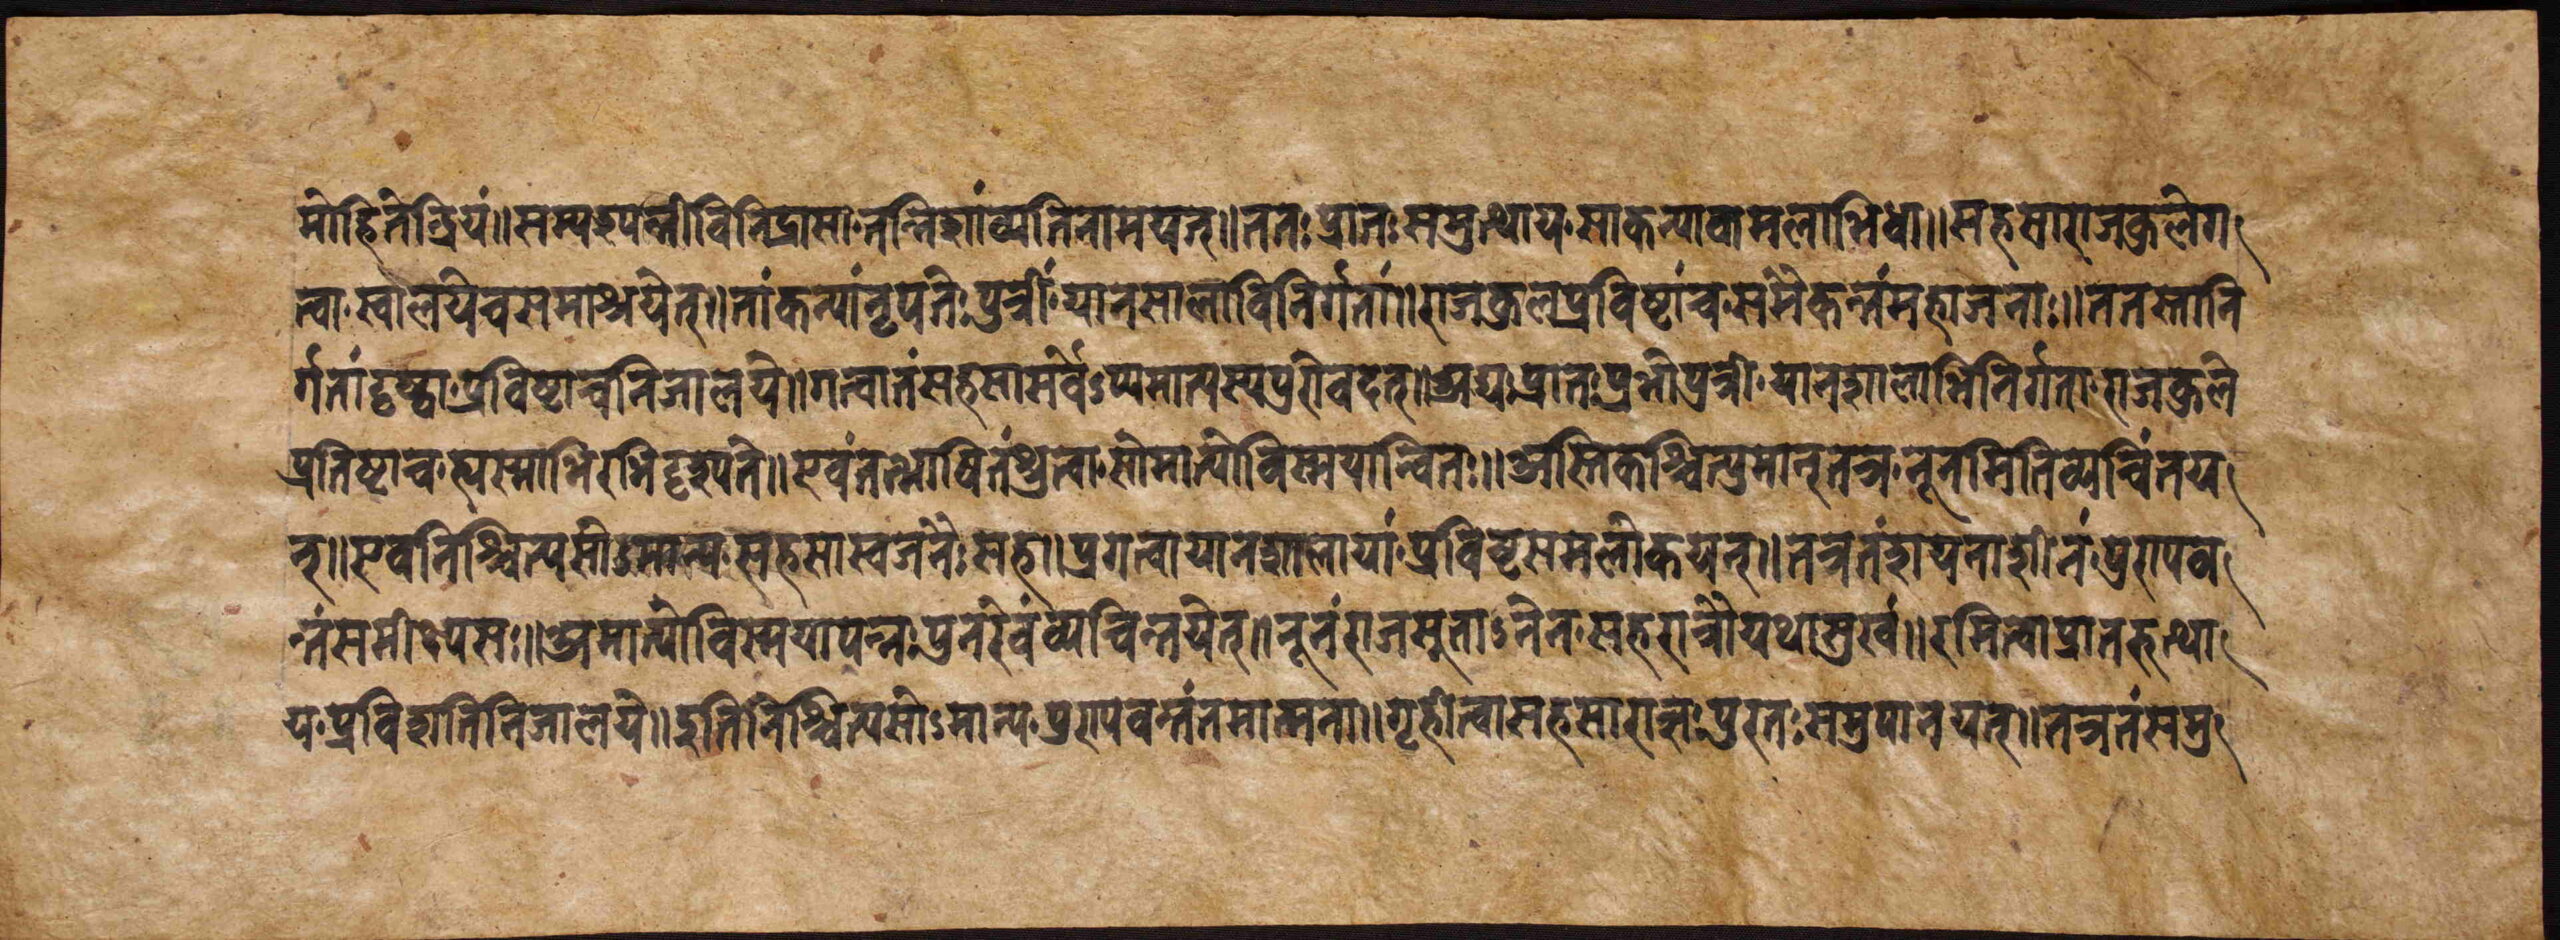 मोहितेन्द्रियं॥सम्पश्यन्तीविनिद्रासा·तन्निशांव्यतिनामयत्॥ततः प्रातः समुत्थाय·साकन्याकमलाभिधा॥सहसाराजकुलेग
त्वा·स्वालयेवसमाश्रयेत्॥तांकन्यांनृपतेः पुत्रीं·यानसालाविनिर्गतां॥राजकुलप्रविष्टांच·समैकन्तंमहाजनाः॥ततस्तानि
र्गतांदृष्ट्वा·प्रविष्टाञ्चनिजालये॥गत्वातंसहसासर्वेऽप्यमात्यस्यपुरोवदत्॥अद्य·प्रातः प्रभोपुत्री·यानशालाभिनिर्गता·राजकुले
प्रतिष्टाच·ह्यस्माभिरभिदृश्यते॥एवंतत्भाषितंश्रुत्वा·सोमात्योविस्मयान्वितः॥अस्तिकश्चित्पुमान्तत्र·नूनमितिव्यचिंतय
त्॥एवनिश्चित्यसोऽमात्य·सहसास्वजनैः सह॥प्रगत्वायानशालायां·प्रविष्टसमलोकयत्॥तत्रतंशयनाशीनं·पुरापव
न्तंसमीक्ष्यसः॥अमात्योविस्मयापन्नः पुनरेवंव्यचिन्तयेत्॥नूनंराजसूताऽनेन·सहरात्रौयथासुखं॥रमित्वाप्रातरुत्था
य·प्रविशतिनिजालये॥इतिनिश्चित्यसोऽमात्य·पुरापवन्तंतमात्मना॥गृहीत्वासहसाराज्ञः पुरतः समुपानयत्॥तत्रतंसमु